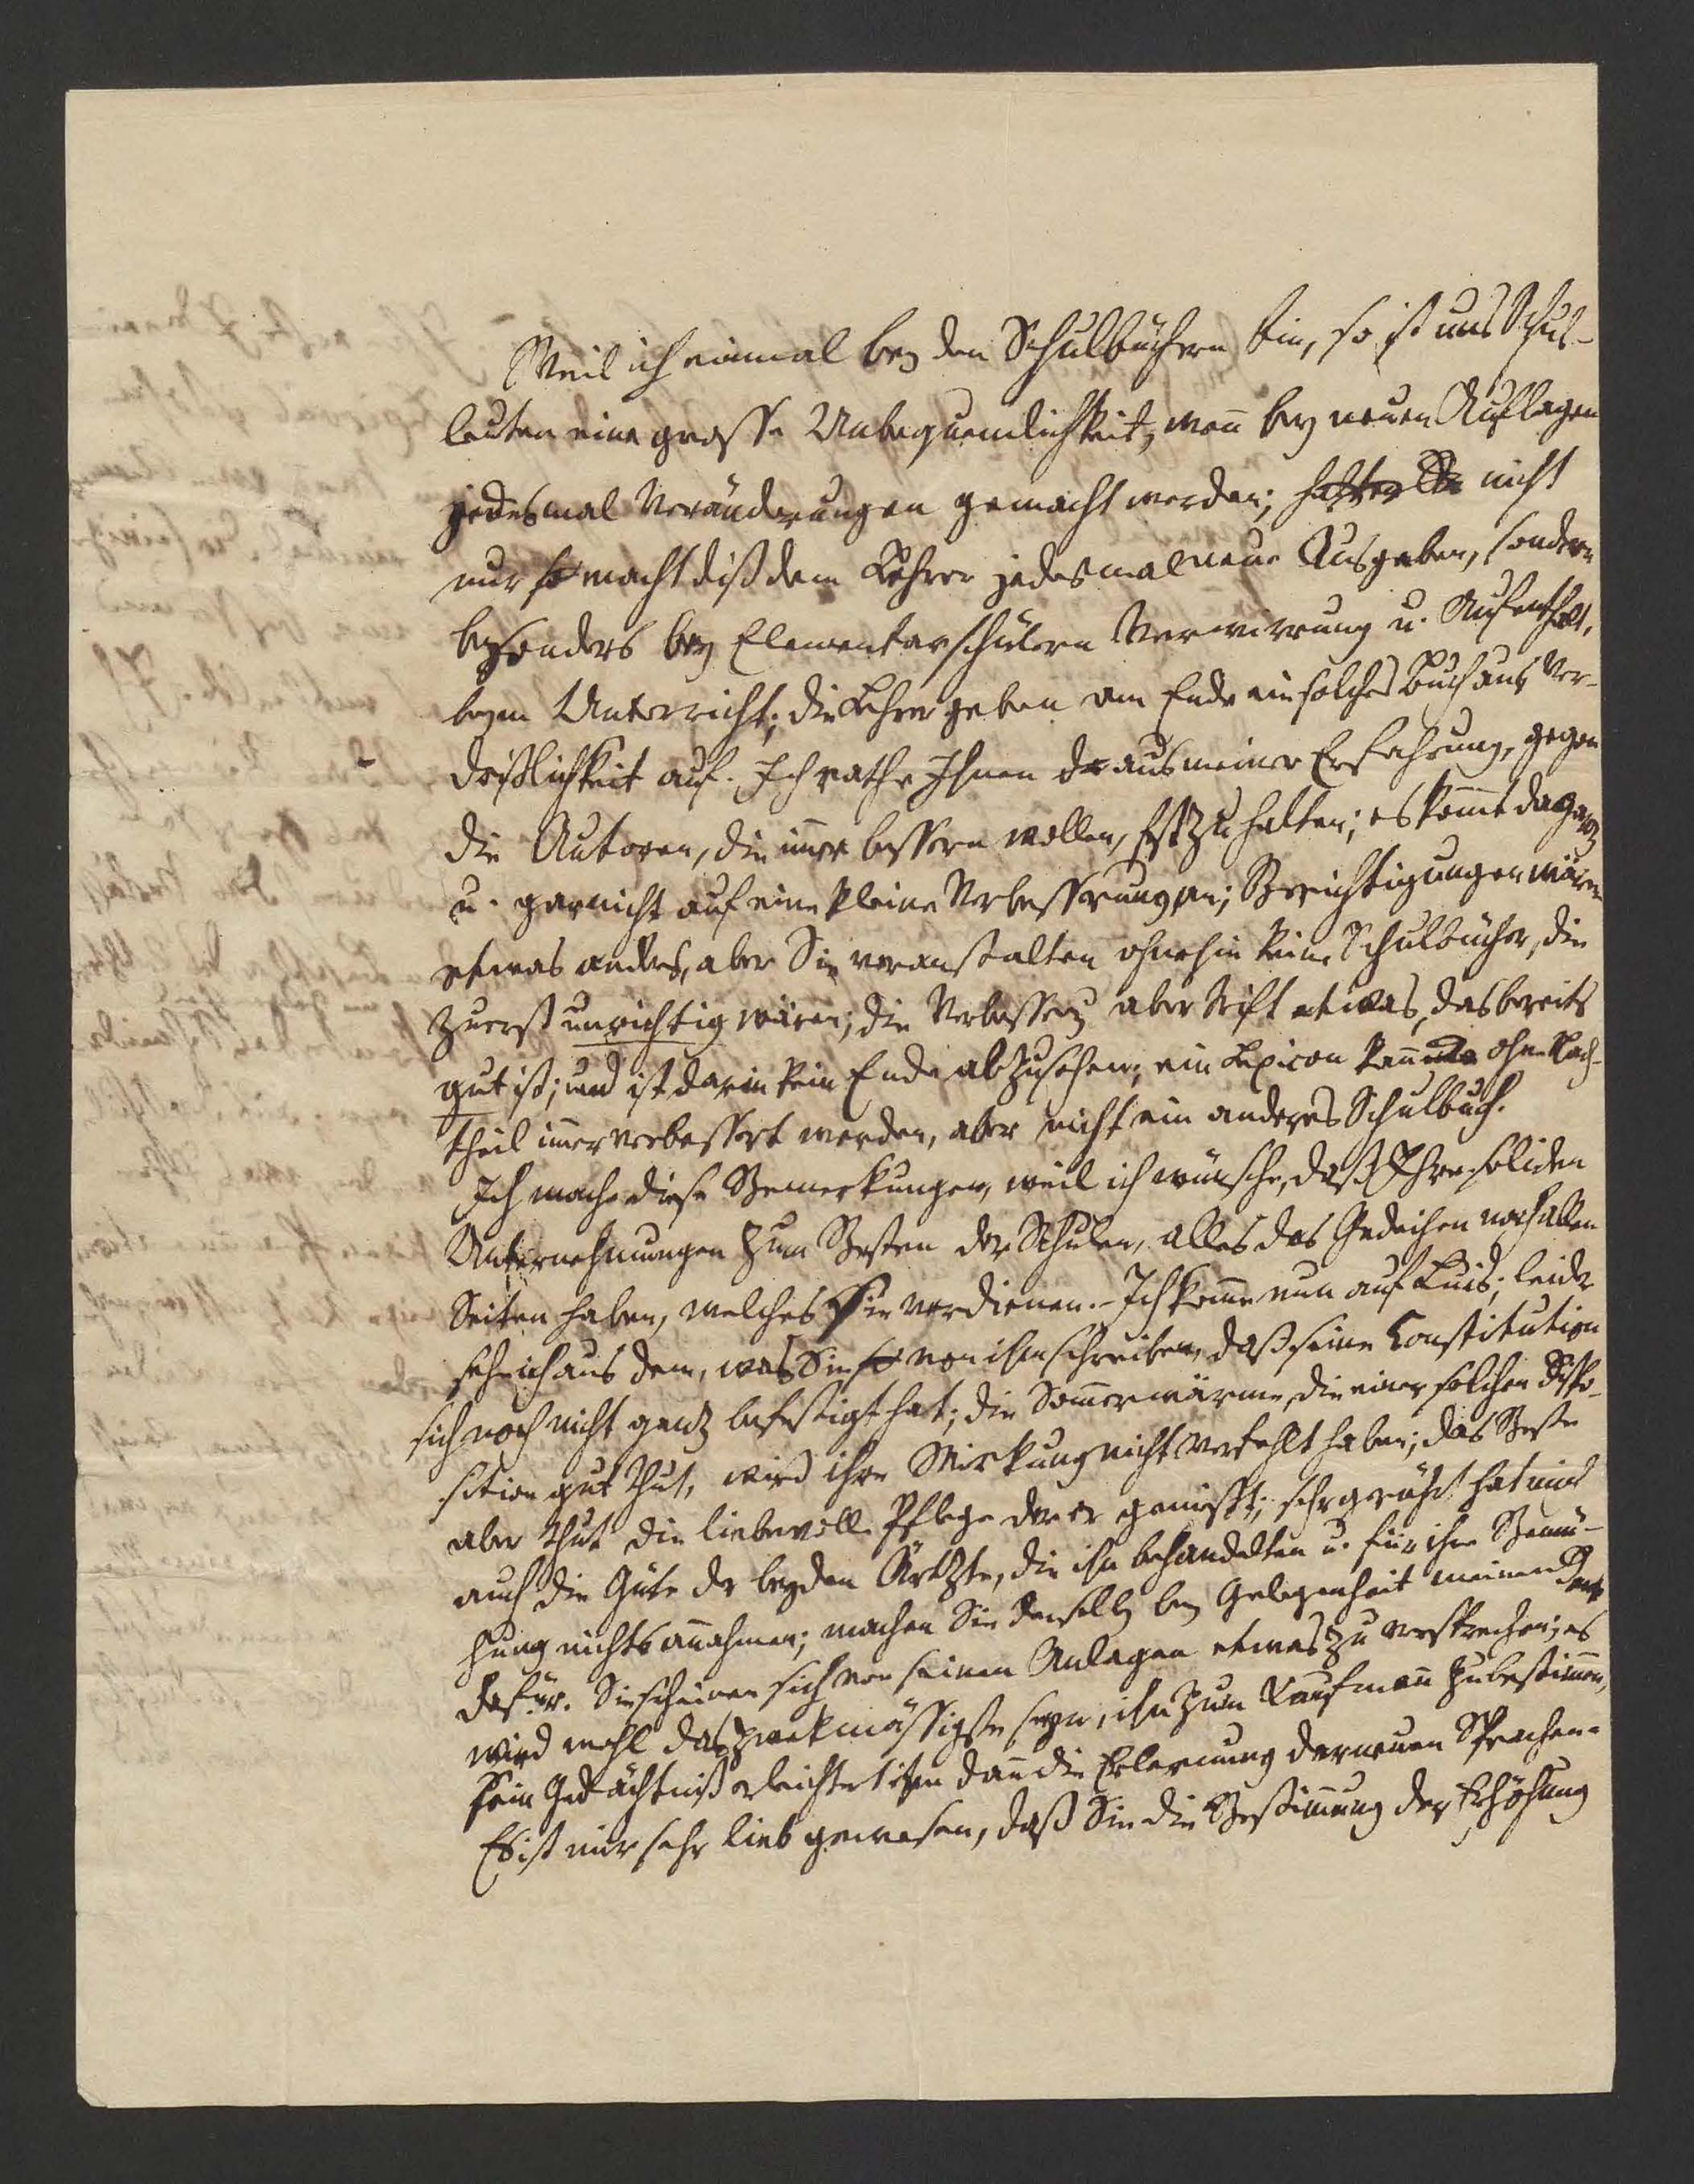 Weil ich einmal bey den Schulbüchern bin, so ist uns Schul-
leuten eine grosse Unbequemlichkeit, wenn bey neuen Auflagen
jedesmal Veränderungen gemacht werden; nicht
nur so macht diß dem Lehrer jedesmal neue Ausgaben, sondern
besonders bey Elementarschülern Verwirrung u. Aufenthalt,
beym Unterricht; die Lehrer geben am Ende ein solches Buch aus Ver-
drißlichkeit auf. Ich rathe Ihnen aus meiner Erfahrung, gegen
die Autoren, die immer bessern wollen, fest zu halten; es kommt da ganz
u. gar nicht auf eine kleine Verbesserung an; Berichtigungen wären
etwas anders, aber Sie veranstalten ohnehin keine Schulbücher, die
zuerst unrichtig wären; die Verbesserung aber trift etwas, das bereits
gut ist; und ist darin kein Ende abzusehen; ein Lexicon kann ohne Nach-
theil immer verbessert werden, aber nicht ein anderes Schulbuch.
Ich mache diese Bemerkungen, weil ich wünsche, daß Ihre soliden
Unternehmungen zum Besten der Schulen, alles das Gedeihen nach allen
Seiten haben, welches Sie verdienen. – Ich komme nun auf Luis; leider
sehe ich aus dem, was Sie so von ihm schreiben, daß seine Constitution
sich noch nicht gantz befestigt hat; die Sommerwärme, die einer solchen Dispo-
sition gut thut, wird ihre Wirkung nicht verfehlt haben; das Beste
aber thut die liebevolle Pflege der er genießt; sehr gerührt hat mich
auch die Güte der beyden Ärtzte, die ihn behandelten u. für ihre Bemü-
hung nichts annahmen; machen Sie denselben bey Gelegenheit meinen Dank
dafür. Sie scheinen sich von seinen Anlagen etwas zu versprechen; es
wird wohl das zwekmässigste seyn, ihn zum Kaufmann zu bestimmen,
sein Gedächtniß erleichtert ihm dann die Erlernung der neuen Sprachen.
Es ist mir sehr lieb gewesen, daß Sie die Bestimmung der Erhöhung